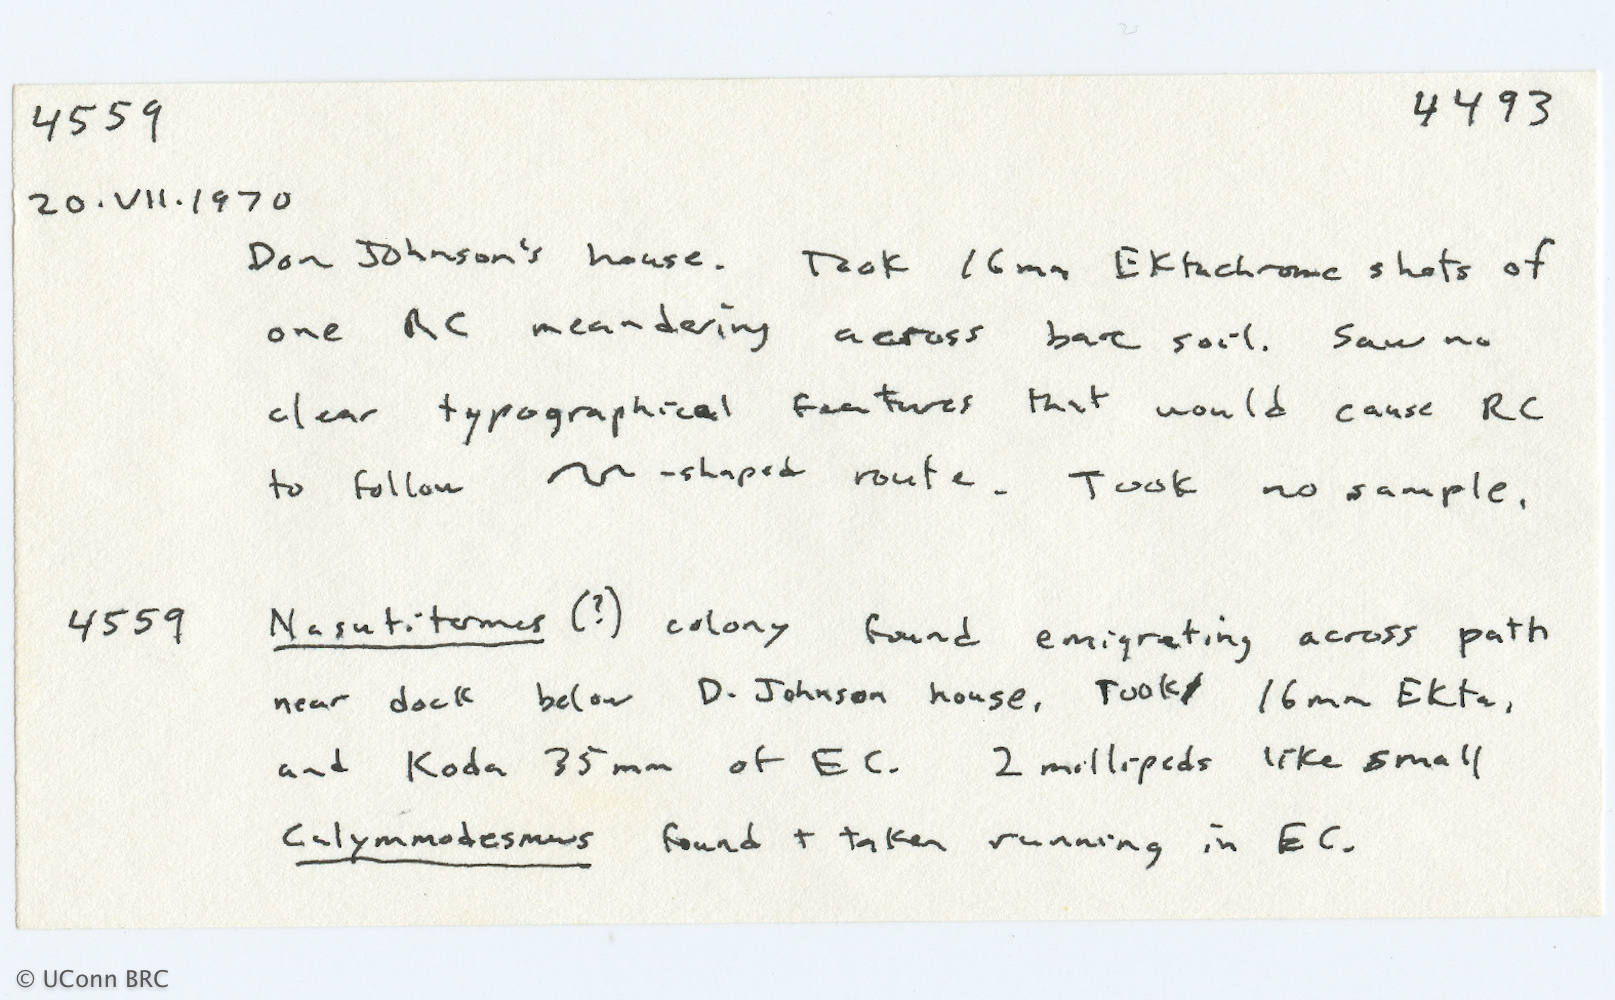 4559 4493
20.VII.1970
Don Johnson's house. Took 16mm Ektachrome shots of
one RC meandering across bare soil. Saw no
clear typographical features that would cause RC
to follow -shaped route. Took no sample.
4559 Nasutitermes (?) colony found emigrating across path
near dock below D. Johnson house. Took 16mm Ekta.
and Koda 35mm of EC. 2 millipeds like small
Calymmodesmus found + taken running in EC.
© UConn BRC